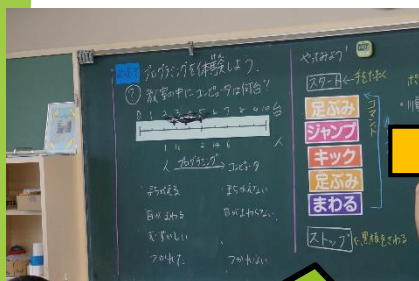 プログラミングを体験しよう。
? 教室の中にコンピュータは何台?
0 1 2 3 4 5 6 7 8 9 10 台
人 プログラミング コンピュータ
まちがえる まちがえない
目がまわる 目がまわらない
むずかしい
つかれた つかれない
やってみよう!
スタート ←手をたたく
足ぶみ
ジャンプ
キック
足ぶみ
まわる
コマンド
ストップ ←黒板をさわる